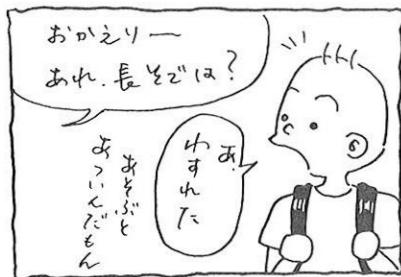 おかえりー
あれ、長そでは？
あ、
わすれた
あそぶと
あついんだもん